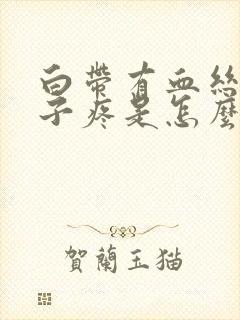 白帶有血絲
子疼是怎麼
賀蘭玉猫